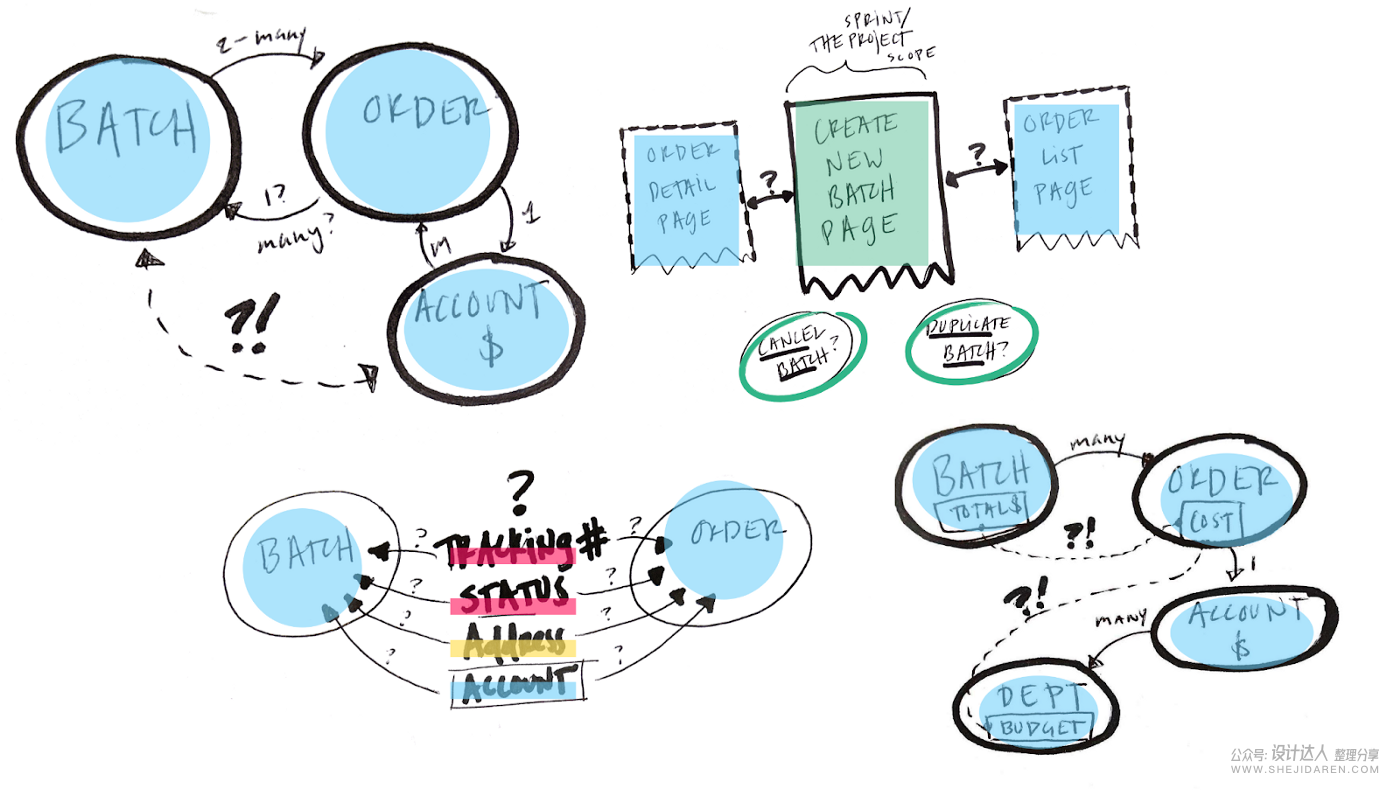 2-many
BATCH
ORDER
1?
many?
1
M
ACCOUNT
$
?!
SPRINT/
THE PROJECT
SCOPE
ORDER
DETAIL
PAGE
?
CREATE
NEW
BATCH
PAGE
?
ORDER
LIST
PAGE
CANCEL
BATCH?
DUPLICATE
BATCH?
?
BATCH
ORDER
? TRACKING# ?
? STATUS ?
? Address ?
? ACCOUNT ?
BATCH
TOTAL$
many
ORDER
COST
?!
1
?!
ACCOUNT
$
MANY
DEPT
BUDGET
公众号: 设计达人 整理分享
WWW.SHEJIDAREN.COM